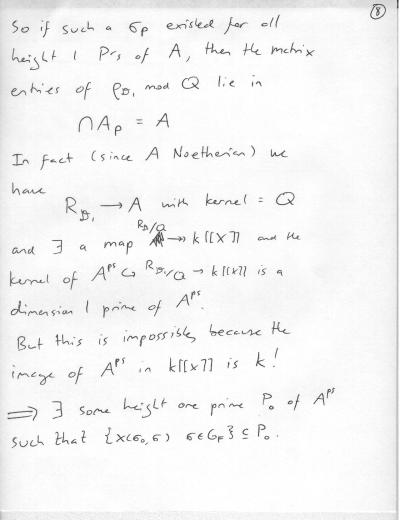 ⑧
So if such a σ_P existed for all
height 1 P's of A, then the matrix
entries of ρ_𝔇₁ mod Q lie in
∩A_P = A
In fact (since A Noetherian) we
have
R_𝔇₁ → A with kernel = Q
and ∃ a map R_𝔇/Q ↠ k[[X]] and the
kernel of A^ps ↪ R_𝔇₁/Q → k[[X]] is a
dimension 1 prime of A^ps.
But this is impossible because the
image of A^ps in k[[X]] is k!
⟹ ∃ some height one prime P₀ of A^ps
such that {X(σ₀,σ) σ∈G_F} ⊆ P₀.